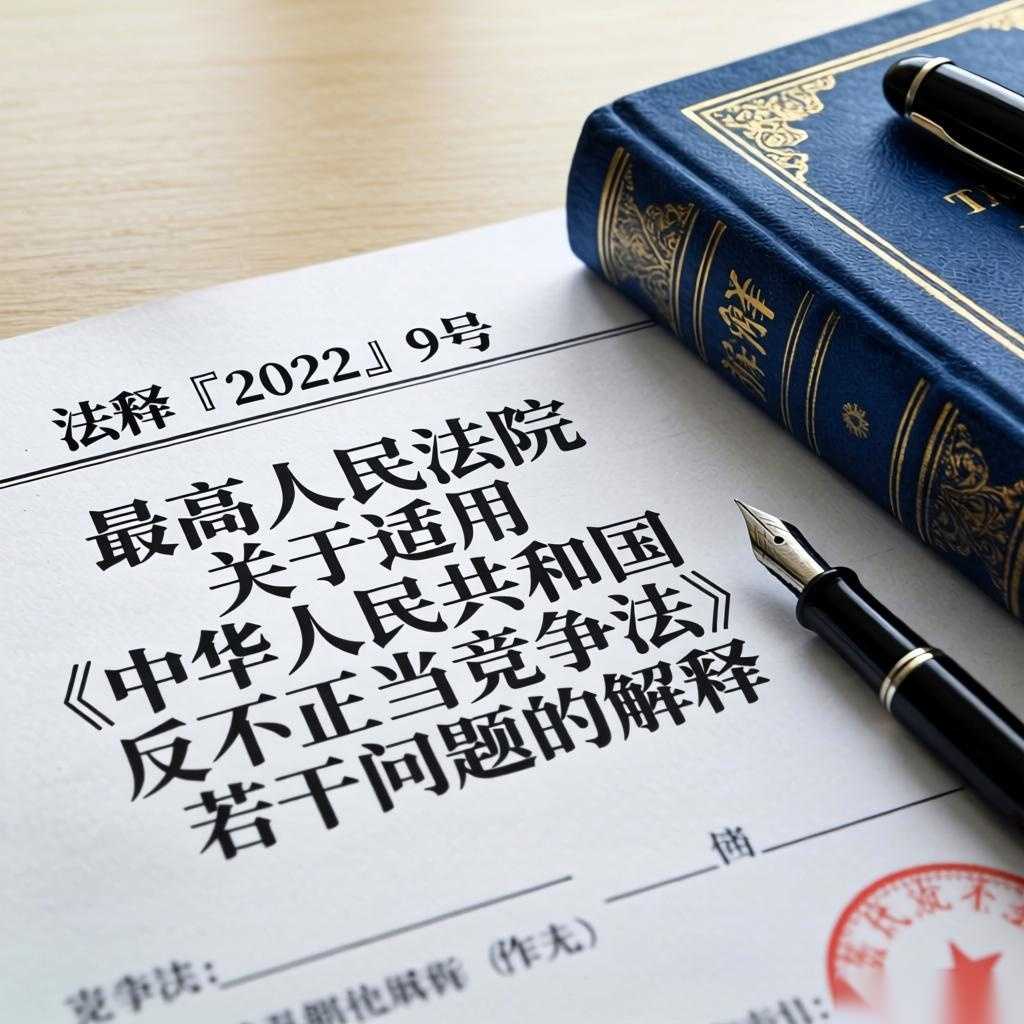 法释『2022』9号
最高人民法院
关于适用
《中华人民共和国
反不正当竞争法》
若干问题的解释